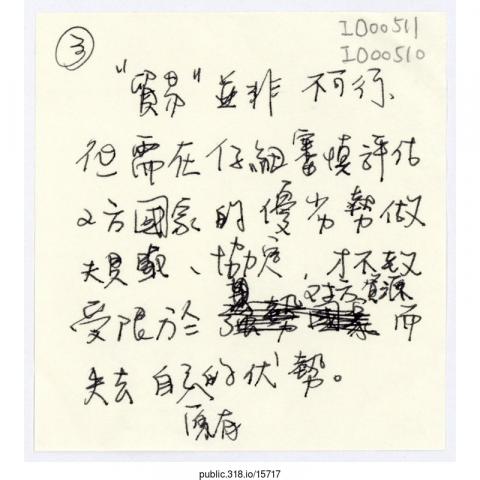 ③
ID00511
ID00510
"貿易"並非 不可行、
但需在仔細審慎評估
2方國家的優劣勢做
規範、協定,才不致
受限於 對方資源 而
失去自己的優勢。
原有
public.318.io/15717